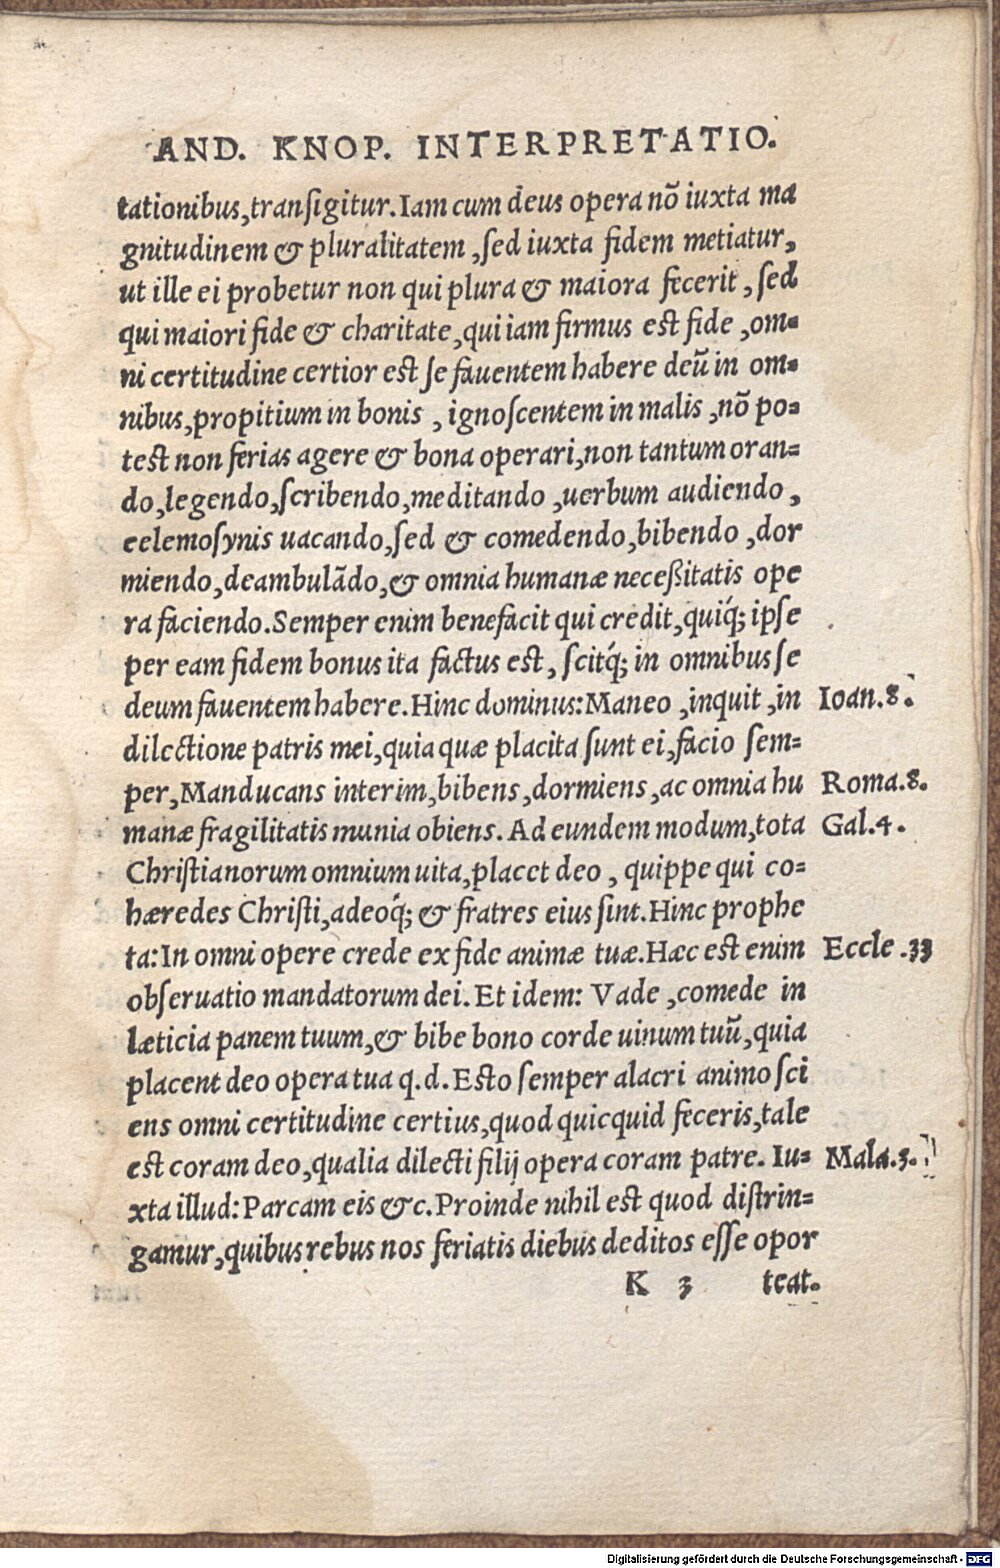 AND. KNOP. INTERPRETATIO.
tationibus,transigitur.Iam cum deus opera nõ iuxta ma
gnitudinem & pluralitatem ,sed iuxta fidem metiatur,
ut ille ei probetur non qui plura & maiora fecerit ,sed
qui maiori fide & charitate,qui iam firmus est fide ,om-
ni certitudine certior est se fauentem habere deũ in om-
nibus,propitium in bonis , ignoscentem in malis ,nõ po-
test non ferias agere & bona operari,non tantum oran-
do,legendo,scribendo,meditando ,uerbum audiendo ,
eelemosynis uacando,sed & comedendo,bibendo ,dor
miendo,deambulãdo,& omnia humanæ neceßitatis ope
ra faciendo.Semper enim benefacit qui credit,quiq́; ipse
per eam fidem bonus ita factus est, scitq́; in omnibus se
deum fauentem habere.Hinc dominus:Maneo ,inquit ,in Ioan.8.
dilectione patris mei,quia quæ placita sunt ei,facio sem-
per,Manducans interim,bibens,dormiens,ac omnia hu Roma.8.
manæ fragilitatis munia obiens. Ad eundem modum,tota Gal.4.
Christianorum omnium uita,placet deo , quippe qui co-
hæredes Christi,adeoq́; & fratres eius sint.Hinc prophe
ta:In omni opere crede ex fide animæ tuæ.Hæc est enim Eccle .33
obseruatio mandatorum dei. Et idem: Vade ,comede in
læticia panem tuum,& bibe bono corde uinum tuũ,quia
placent deo opera tua q.d.Esto semper alacri animo sci
ens omni certitudine certius,quod quicquid feceris,tale
est coram deo,qualia dilecti filij opera coram patre. Iu- Mala.3.
xta illud:Parcam eis &c.Proinde nihil est quod distrin-
gamur,quibus rebus nos feriatis diebus deditos esse opor
K 3 teat.
Digitalisierung gefördert durch die Deutsche Forschungsgemeinschaft - DFG